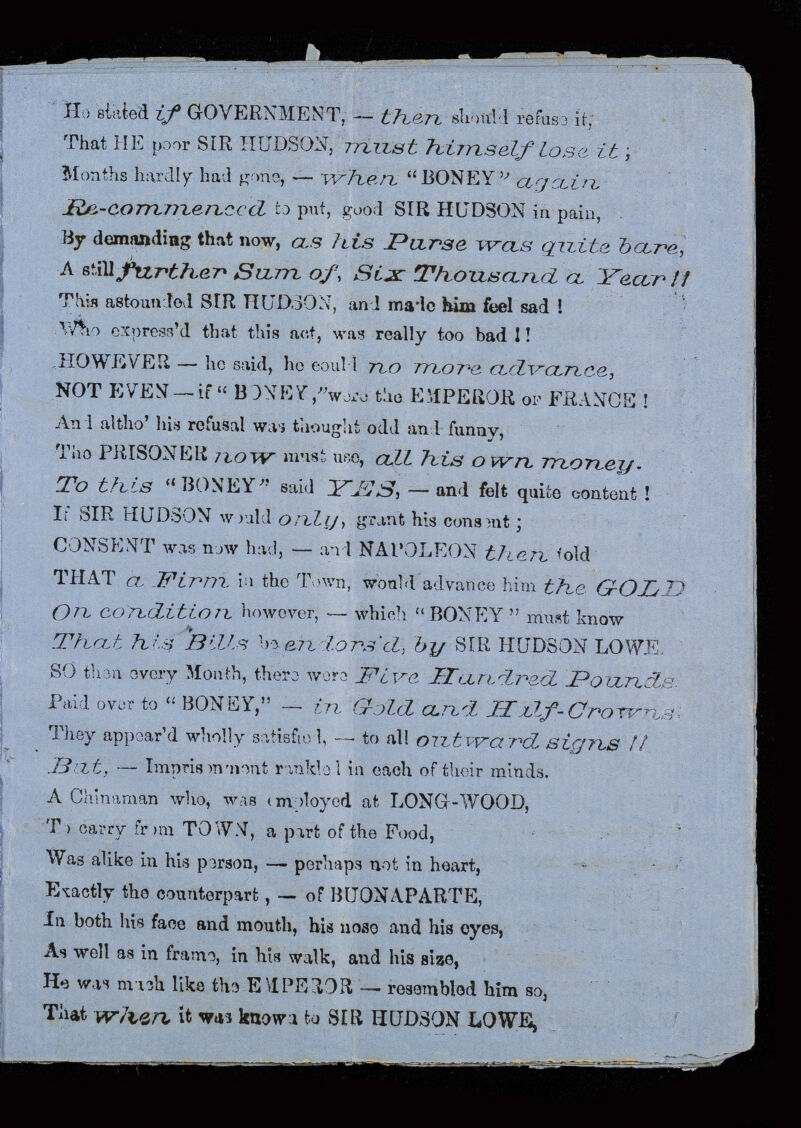 He stated if GOVERNMENT, — then should refuse it,
That HE poor SIR HUDSON, must himself lose it;
Months hardly had gone, — when "BONEY" again
Re-commenced to put, good SIR HUDSON in pain,
By demanding that now, as his Purse was quite bare,
A still further Sum of, Six Thousand a Year!!
This astounded SIR HUDSON, and made him feel sad !
Who express'd that this act, was really too bad !!
HOWEVER — he said, he could no more advance,
NOT EVEN — if "BONEY," were the EMPEROR OF FRANCE !
And altho' his refusal was thought odd and funny,
The PRISONER now must use, all his own money.
To this "BONEY" said YES, — and felt quite content !
If SIR HUDSON would only, grant his consent ;
CONSENT was now had, — and NAPOLEON then told
THAT a Firm in the Town, would advance him the GOLD
On condition however, — which "BONEY" must know
That his Bills be endors'd, by SIR HUDSON LOWE.
SO then every Month, there were Five Hundred Pounds
Paid over to "BONEY," — in Gold and Half-Crowns.
They appear'd wholly satisfied, — to all outward signs !!
But, — Imprisonment rankled in each of their minds.
A Chinaman who, was employed at LONG-WOOD,
To carry from TOWN, a part of the Food,
Was alike in his person, — perhaps not in heart,
Exactly the counterpart, — of BUONAPARTE,
In both his face and mouth, his nose and his eyes,
As well as in frame, in his walk, and his size,
He was much like the EMPEROR — resembled him so,
That when it was known to SIR HUDSON LOWE,